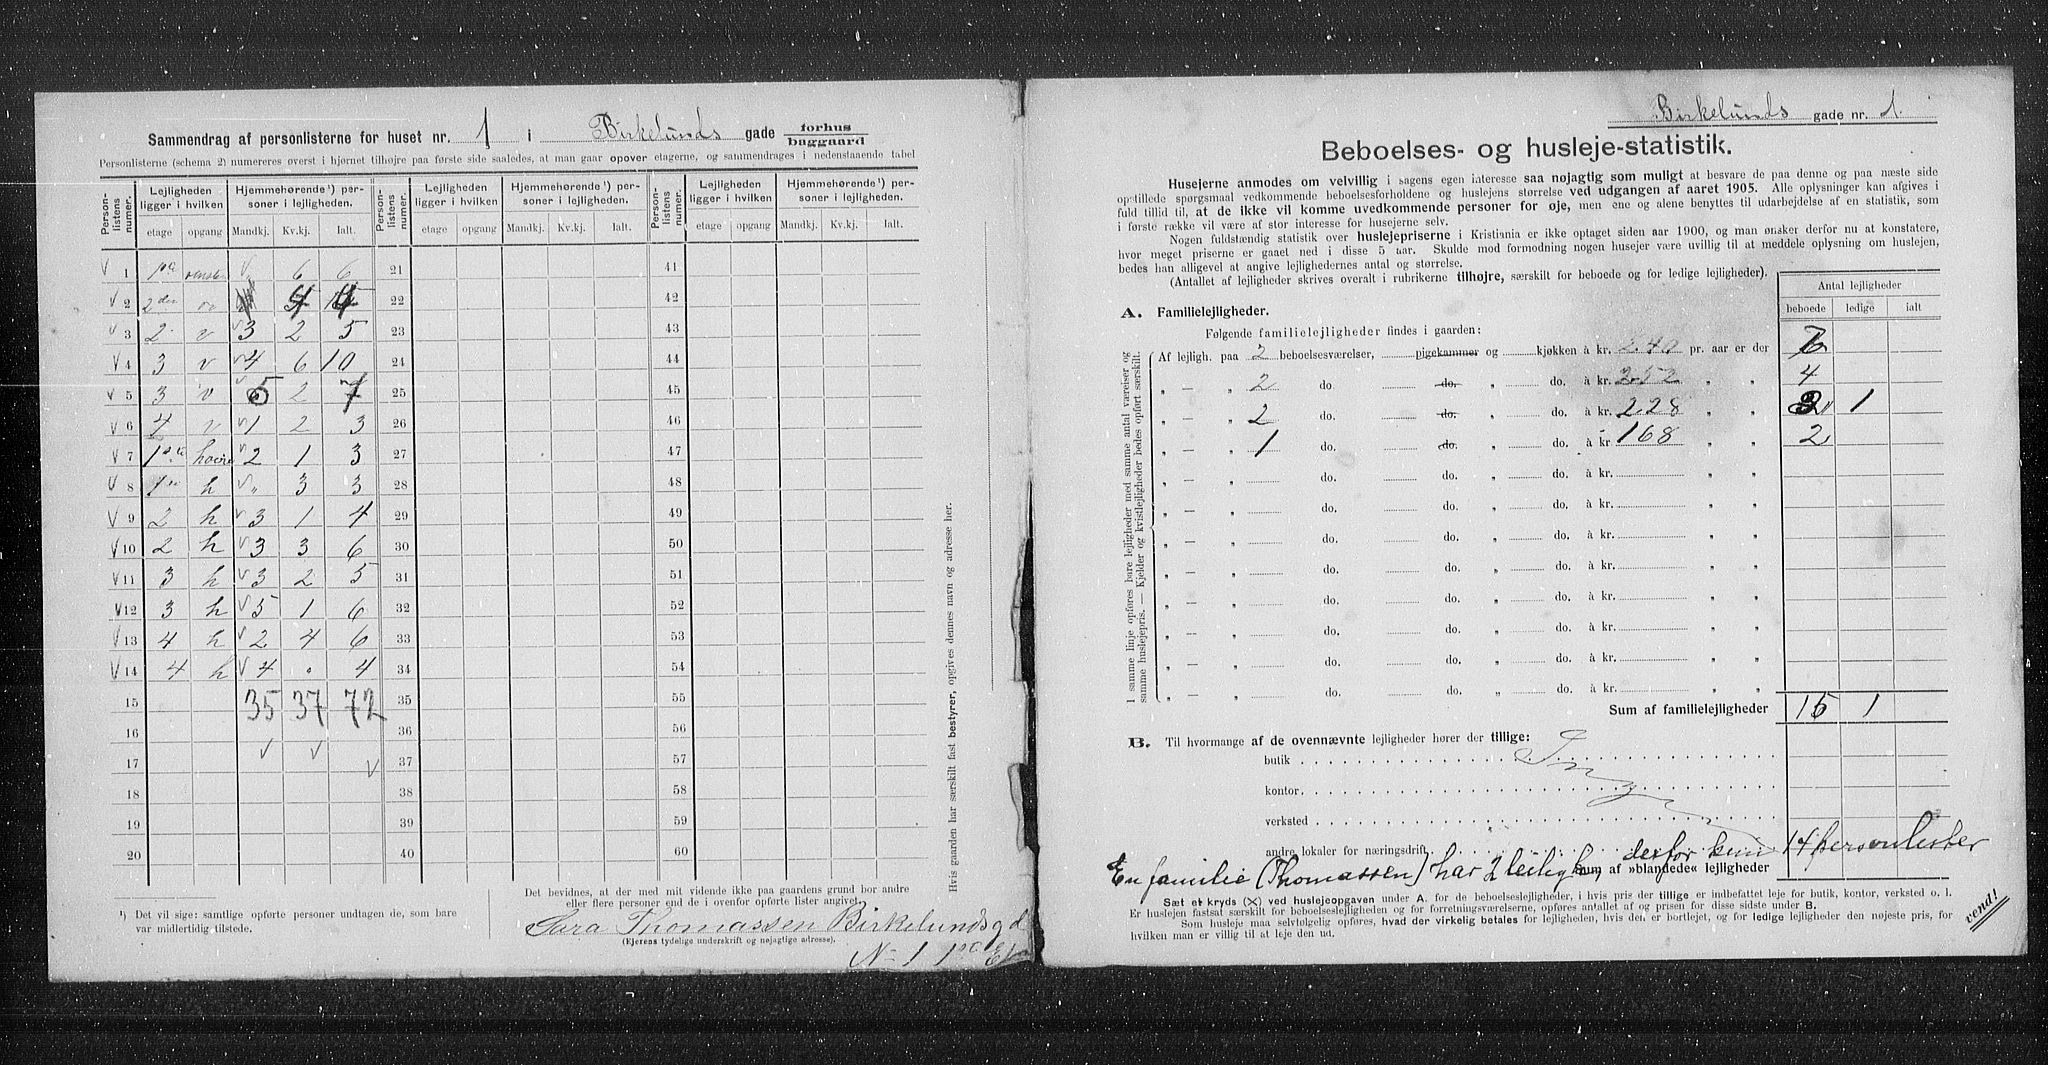 Sammendrag af personlisterne for huset nr. 1 i Birkelunds gade forhus baggaard
Personlisterne (schema 2) numereres øverst i hjørnet tilhøjre paa første side saaledes, at man gaar opover etagerne, og sammendrages i nedenstaaende tabel
Person-listens numer. Lejligheden ligger i hvilken Hjemmehørende¹) personer i lejligheden. Person-listens numer. Lejligheden ligger i hvilken Hjemmehørende¹) personer i lejligheden. Person-listens numer. Lejligheden ligger i hvilken Hjemmehørende¹) personer i lejligheden.
etage opgang Mandkj. Kv.kj. Ialt. etage opgang Mandkj. Kv.kj. Ialt. etage opgang Mandkj. Kv.kj. Ialt.
V 1 1ste venstre V „ 6 6 21 41
V 2 2den v 4 4 22 42
V 3 2 v V 3 2 5 23 43
V 4 3 v V 4 6 10 24 44
V 5 3 v V 5 2 7 25 45
V 6 4 v V 1 2 3 26 46
V 7 1ste høire V 2 1 3 27 47
V 8 1ste h V „ 3 3 28 48
V 9 2 h V 3 1 4 29 49
V 10 2 h V 3 3 6 30 50
V 11 3 h V 3 2 5 31 51
V 12 3 h V 5 1 6 32 52
V 13 4 h V 2 4 6 33 53
V 14 4 h V 4 „ 4 34 54
15 35 37 72 35 55
16 36 56
17 V V V 37 57
18 38 58
19 39 59
20 40 60
Hvis gaarden har særskilt fast bestyrer, opgives dennes navn og adresse her.
¹) Det vil sige: samtlige opførte personer undtagen de, som bare var midlertidig tilstede.
Det bevidnes, at der med mit vidende ikke paa gaardens grund bor andre
eller flere personer end de i ovenfor opførte lister angivet.
Sara Thomassen Birkelundsgd
(Ejerens tydelige underskrift og nøjagtige adresse).
No 1 1ste Et
Birkelunds gade nr. 1.
Beboelses- og husleje-statistik.
Husejerne anmodes om velvillig i sagens egen interesse saa nøjagtig som muligt at besvare de paa denne og paa næste side
opstillede spørgsmaal vedkommende beboelsesforholdene og huslejens størrelse ved udgangen af aaret 1905. Alle oplysninger kan afgives i
fuld tillid til, at de ikke vil komme uvedkommende personer for øje, men ene og alene benyttes til udarbejdelse af en statistik, som
i første række vil være af stor interesse for husejerne selv.
Nogen fuldstændig statistik over huslejepriserne i Kristiania er ikke optaget siden aar 1900, og man ønsker derfor nu at konstatere,
hvor meget priserne er gaaet ned i disse 5 aar. Skulde mod formodning nogen husejer være uvillig til at meddele oplysning om huslejen,
bedes han alligevel at angive lejlighedernes antal og størrelse.
(Antallet af lejligheder skrives overalt i rubrikerne tilhøjre, særskilt for beboede og for ledige lejligheder).
Antal lejligheder
beboede ledige ialt
A. Familielejligheder.
Følgende familielejligheder findes i gaarden:
I samme linje opføres bare lejligheder med samme antal værelser og samme huslejepris. — Kjelder og kvistlejligheder bedes opført særskilt.
Af lejligh. paa 2 beboelsesværelser, pigekammer og kjøkken à kr. 240 pr. aar er der 6
„ — „ 2 do. do. „ do. à kr. 252 „ „ 4
„ — „ 2 do. do. „ do. à kr. 228 „ „ 3 1
„ — „ 1 do. do. „ do. à kr. 168 „ „ 2
„ — „ do. do. „ do. à kr. „ „
„ — „ do. do. „ do. à kr. „ „
„ — „ do. do. „ do. à kr. „ „
„ — „ do. do. „ do. à kr. „ „
„ — „ do. do. „ do. à kr. „ „
„ — „ do. do. „ do. à kr. „ „
„ — „ do. do. „ do. à kr. „ „
„ — „ do. do. „ do. à kr. „ „
Sum af familielejligheder 15 1
B. Til hvormange af de ovennævnte lejligheder hører der tillige:
butik
kontor Ingen
verksted
andre lokaler for næringsdrift
Sum af »blandede« lejligheder
En familie (Thomassen) har 2 leiligh. derfor kun 14 personlister
Sæt et kryds (X) ved huslejeopgaven under A. for de beboelseslejligheder, i hvis pris der tillige er indbefattet leje for butik, kontor, verksted o. l.
Er huslejen fastsat særskilt for beboelseslejligheder og for forretningsværelser, opføres antallet af og prisen for disse sidste under B.
Som husleje maa selvfølgelig opføres, hvad der virkelig betales for lejligheden, hvis den er bortlejet, og for ledige lejligheder den nøjeste pris, for
hvilken man er villig til at leje den ud.
vend!